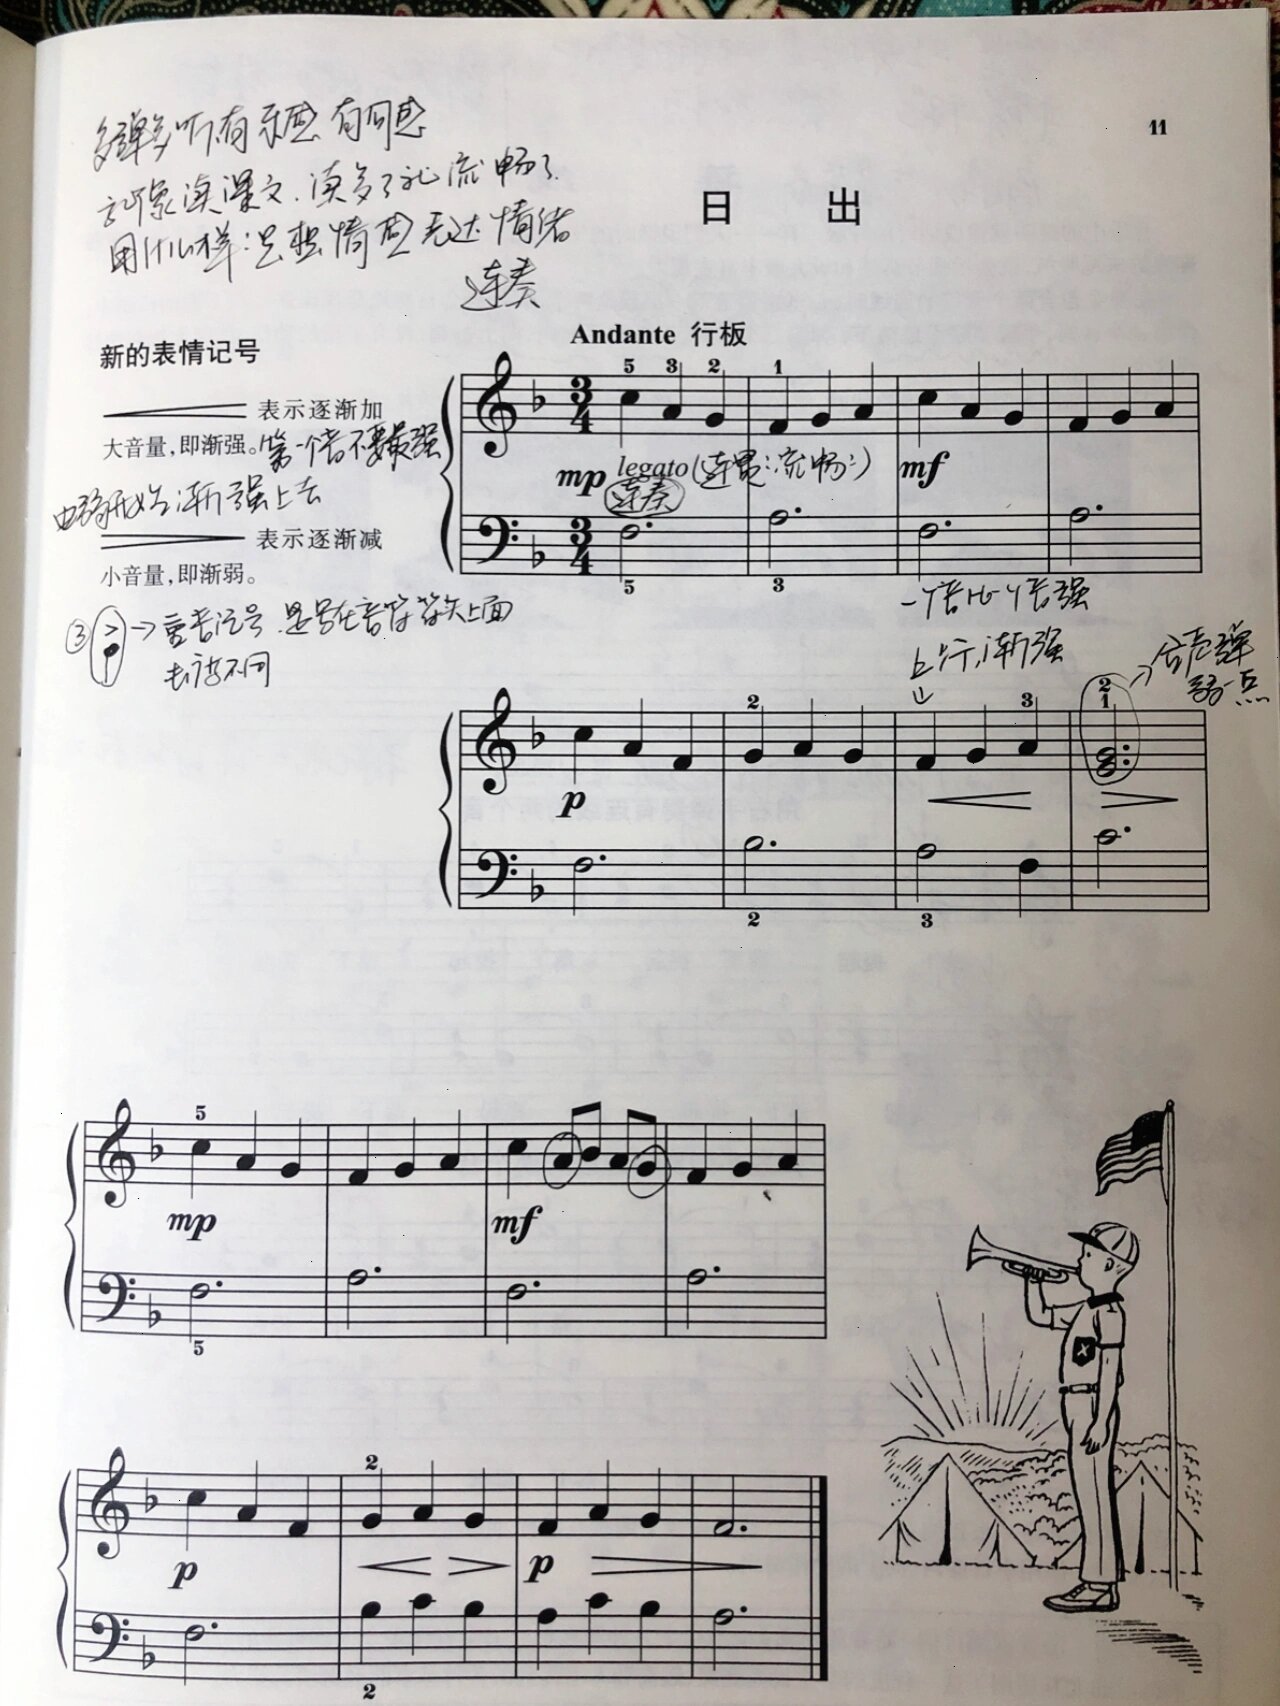 11
多弹多听,有乐感 有同感
就象读课文.读多了就流畅了.
日 出
连奏
Andante 行板
新的表情记号
表示逐渐加
大音量,即渐强。第一个音不要最强
开始渐强上去
表示逐渐减
小音量,即渐弱。
③ > → 重音记号 是写在音符符头上面
5 3 2 1
mp legato (连贯:流畅:) mf
连奏
5 3
一个音比一个音强
上行渐强
合声弹
弱一点
2 3 2
1
p
2 3
5
mp mf
5
2
p p
2